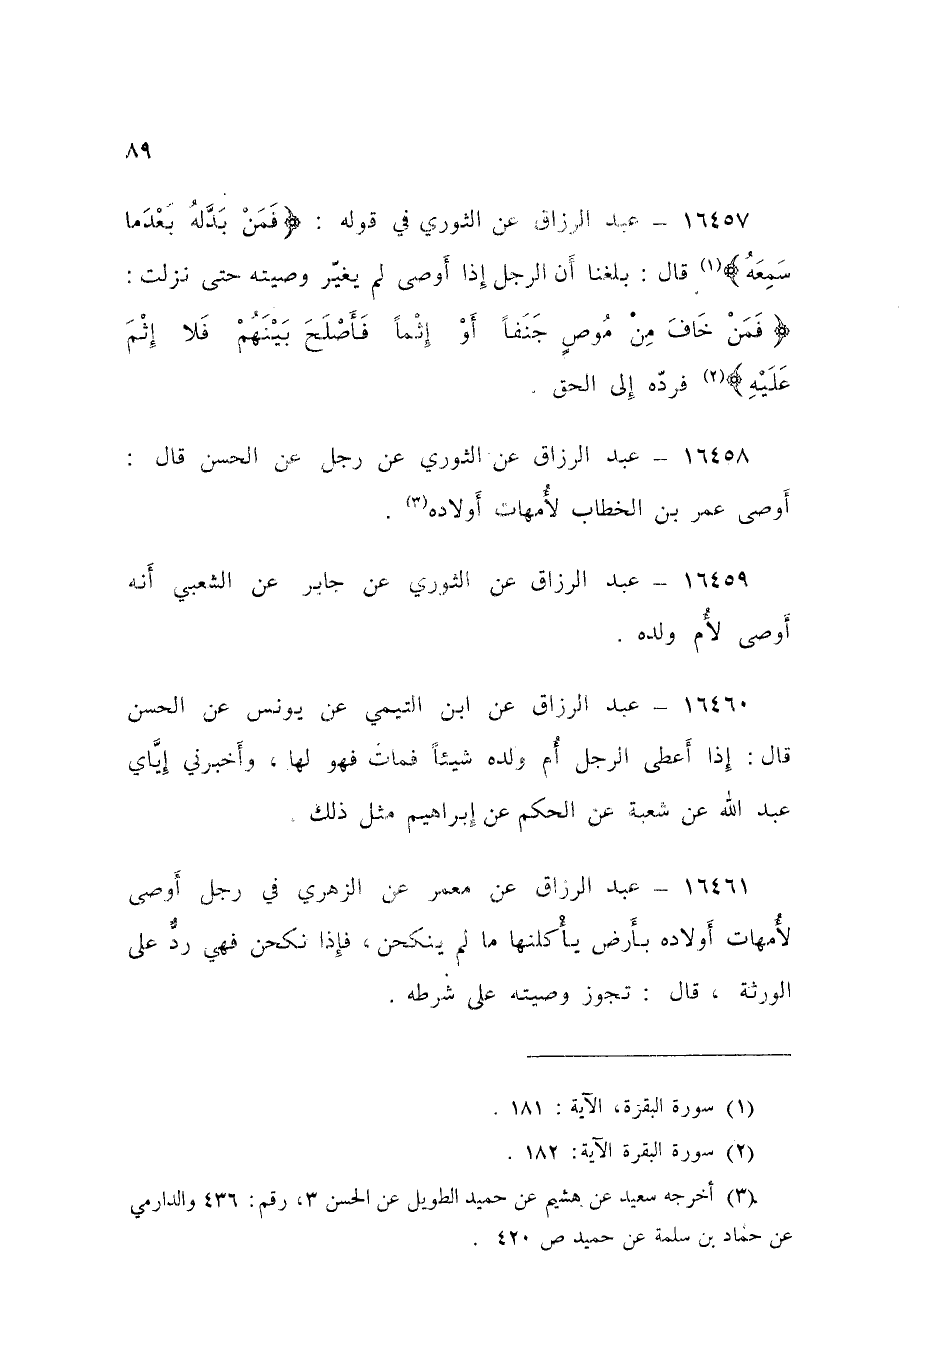 ٨٩
١٦٤٥٧ – عبد الرزاق عن الثوري في قوله : ﴿فَمَنْ بَدَّلَهُ بَعْدَما
سَمِعَهُ﴾(١) قال : بلغنا أن الرجل إذا أوصى لم يغيّر وصيته حتى نزلت :
﴿ فَمَنْ خَافَ مِنْ مُوصٍ جَنَفاً أَوْ إِثْماً فَأَصْلَحَ بَيْنَهُمْ فَلا إِثْمَ
عَلَيْهِ﴾(٢) فردّه إلى الحق .
١٦٤٥٨ – عبد الرزاق عن الثوري عن رجل عن الحسن قال :
أوصى عمر بن الخطاب لأُمهات أولاده(٣) .
١٦٤٥٩ – عبد الرزاق عن الثوري عن جابر عن الشعبي أنه
أوصى لأُم ولده .
١٦٤٦٠ – عبد الرزاق عن ابن التيمي عن يونس عن الحسن
قال : إذا أعطى الرجل أُم ولده شيئاً فمات فهو لها ، وأخبرني إيَّاي
عبد الله عن شعبة عن الحكم عن إبراهيم مثل ذلك .
١٦٤٦١ – عبد الرزاق عن معمر عن الزهري في رجل أوصى
لأُمهات أولاده بأرض يأْكلنها ما لم ينكحن ، فإذا نكحن فهي ردٌّ على
الورثة ، قال : تجوز وصيته على شرطه .
(١) سورة البقرة، الآية : ١٨١ .
(٢) سورة البقرة الآية: ١٨٢ .
(٣) أخرجه سعيد عن هشيم عن حميد الطويل عن الحسن ٣، رقم: ٤٣٦ والدارمي
عن حماد بن سلمة عن حميد ص ٤٢٠ .